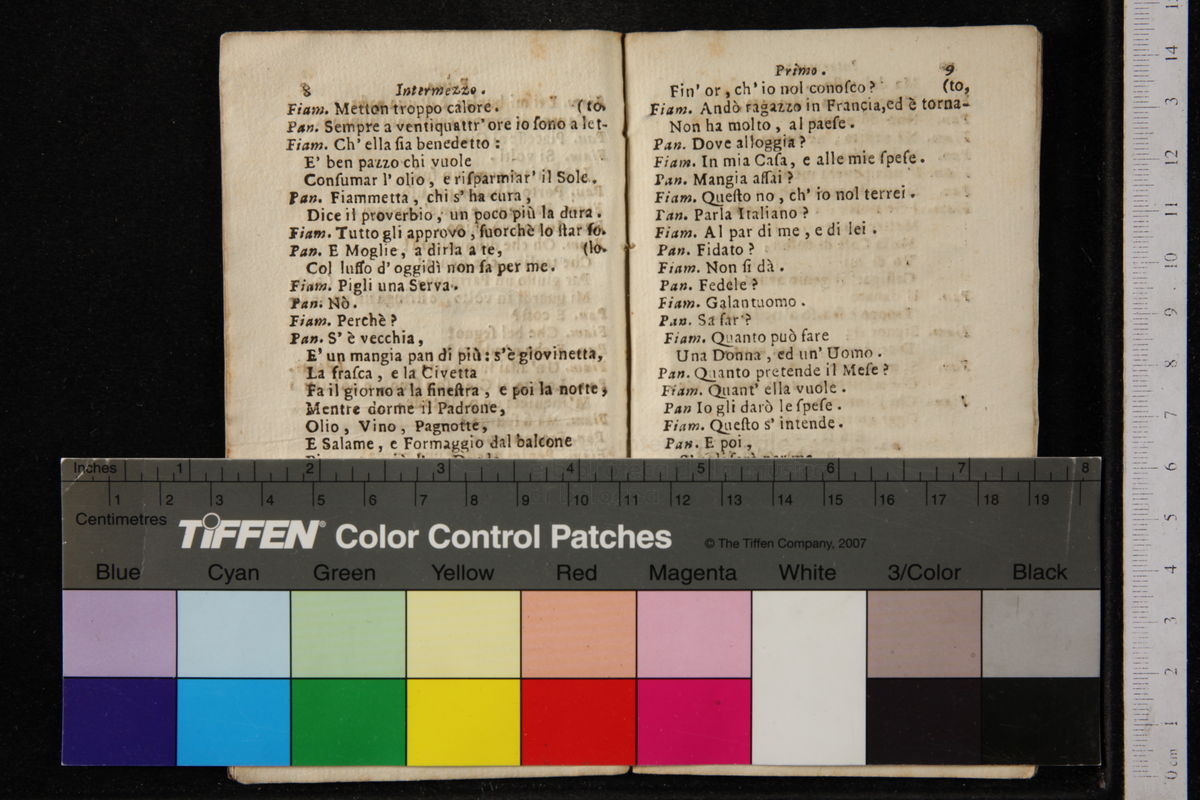 8 Intermezzo.
Fiam. Metton troppo calore. (to.
Pan. Sempre a ventiquattr' ore io ſono a let-
Fiam. Ch' ella ſia benedetto :
E' ben pazzo chi vuole
Conſumar l' olio, e riſparmiar' il Sole.
Pan. Fiammetta, chi s' ha cura,
Dice il proverbio, un poco più la dura.
Fiam. Tutto gli approvo, fuorchè lo ſtar ſo.
Pan. E Moglie, a dirla a te, (lo.
Col luſſo d' oggidì non fa per me.
Fiam. Pigli una Serva.
Pan. Nò.
Fiam. Perchè ?
Pan. S' è vecchia,
E' un mangia pan di più : s'è giovinetta,
La fraſca, e la Civetta
Fa il giorno a la fineſtra, e poi la notte,
Mentre dorme il Padrone,
Olio, Vino, Pagnotte,
E Salame, e Formaggio dal balcone
Primo. 9
Fin' or, ch' io nol conoſco ? (to,
Fiam. Andò ragazzo in Francia,ed è torna-
Non ha molto, al paeſe.
Pan. Dove alloggia ?
Fiam. In mia Caſa, e alle mie ſpeſe.
Pan. Mangia aſſai ?
Fiam. Queſto no, ch' io nol terrei.
Pan. Parla Italiano ?
Fiam. Al par di me, e di lei.
Pan. Fidato ?
Fiam. Non ſi dà.
Pan. Fedele ?
Fiam. Galantuomo.
Pan. Sa far' ?
Fiam. Quanto può fare
Una Donna, ed un' Uomo.
Pan. Quanto pretende il Meſe ?
Fiam. Quant' ella vuole.
Pan Io gli darò le ſpeſe.
Fiam. Queſto s' intende.
Pan. E poi,
Inches 1 2 3 4 5 6 7 8
1 2 3 4 5 6 7 8 9 10 11 12 13 14 15 16 17 18 19
Centimetres
TiFFEN® Color Control Patches © The Tiffen Company, 2007
Blue Cyan Green Yellow Red Magenta White 3/Color Black
0 cm 1 2 3 4 5 6 7 8 9 10 11 12 13 14